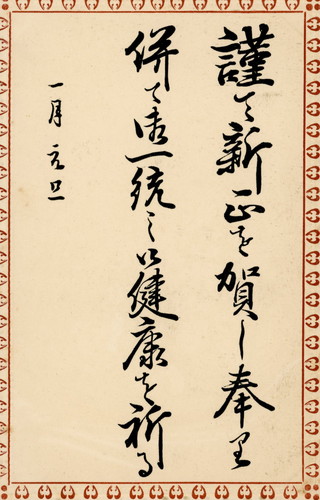 謹て新正を賀し奉里
併て御一統之御健康を祈る
一月元旦